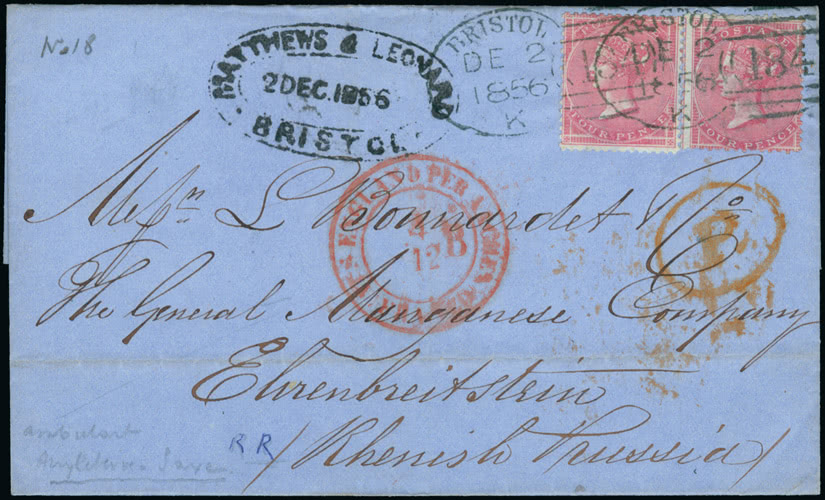 No 18
MATTHEWS & LEONARD
2 DEC. 1856
BRISTOL
BRISTOL
DE 2
1856
K
BRISTOL
DE 2
K
184
POSTAGE
FOUR PENCE
FOUR PENCE
ENGLAND PER AACHEN
12 B
P
Messrs L Bonnardet & Co
The General Manganese Company
Ehrenbreitstein
/ Rhenish Prussia /
ambulant
RR